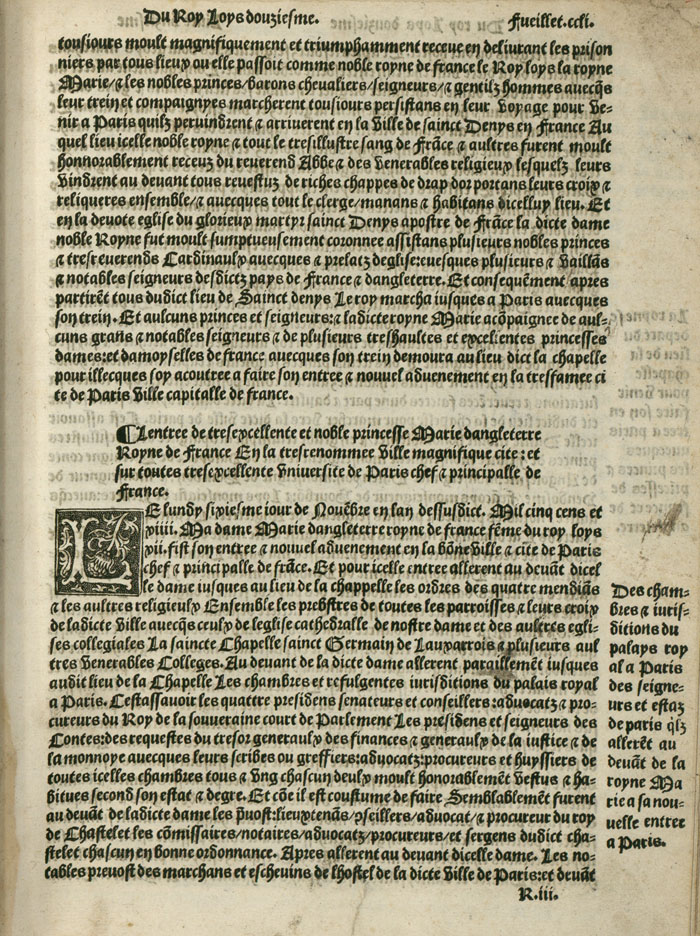 Du Roy Loys douziesme. Fueillet.ccli.
tousiours moult magnifiquement et triumphamment receue en delivrant les prison
niers par tous lieux ou elle passoit comme noble royne de france le Roy loys la royne
Marie/⁊ les nobles princes/barons chevaliers/seigneurs/⁊ gentilz hommes avecqs
leur trein et compaignyes marcherent tousiours persistans en leur voyage pour ve-
nir a Paris quilz pervindrent ⁊ arriverent en la ville de sainct Denys en France Au
quel lieu icelle noble royne ⁊ tout le tresillustre sang de Frãce ⁊ aultres furent moult
honnorablement receuz du reverend Abbe ⁊ des venerables religieux lesquelz leurs
vindrent au devant tous revestuz de riches chappes de drap dor portans leurs croix ⁊
reliqueres ensemble/⁊ auecques tout le clerge/manans ⁊ habitans dicelluy lieu. Et
en la devote eglise du glorieux martyr sainct Denys apostre de Frãce la dicte dame
noble Royne fut moult sumptueusement coronnee assistans plusieurs nobles princes
⁊ tresreverends Cardinaulx auecques ⁊ prelatz deglise:evesques plusieurs ⁊ vaillãs
⁊ notables seigneurs desdictz pays de France ⁊ dangleterre. Et consequẽment apres
partirẽt tous dudict lieu de Sainct denys Le roy marcha iusques a Paris auecques
son trein. Et aulcuns princes et seigneurs:⁊ la dicte royne Marie acõpaignee de aul-
cuns grans ⁊ notables seigneurs ⁊ de plusieurs treshaultes et excelentes princesses
dames:et damoyselles de france auecques son trein demoura au lieu dict la chapelle
pour illecques soy acoutree a faire son entree ⁊ nouvel aduenement en la tresfamee ci
te de Paris ville capitalle de france.
¶Lentree de tresexcellente et noble princesse Marie dangleterre
Royne de France En la tresrenommee ville magnifique cite: et
sur toutes tresexcellente Vniversite de Paris chef ⁊ principalle de
France.
LE lundy sixiesme iour de Nouẽbre en lan dessusdict. Mil cinq cens et
xiiii. Ma dame Marie dangleterre royne de france fẽme du roy loys
xii. fist son entree ⁊ nouuel aduenement en la bõne ville ⁊ cite de Paris
chef ⁊ principalle de frãce. Et pour icelle entree allerent au deuãt dicel
le dame iusques au lieu de la chappelle les ordres des quatre mendiãs
⁊ les aultres religieulx Ensemble les prebstres de toutes les parroisses ⁊ leurs croix
de la dicte ville auecqs ceulx de leglise cathedralle de nostre dame et des aultres egli-
ses collegiales La saincte Chapelle sainct Germain de Lauxarrois ⁊ plusieurs aul
tres venerables Colleges. Au devant de la dicte dame allerent pareillemẽt iusques
audit lieu de la Chapelle Les chambres et refulgentes iurisditions du palais royal
a Paris. Cestassavoir les quatre presidens senateurs et conseillers:advocatz ⁊ pro-
cureurs du Roy de la souveraine court de Parlement Les presidens et seigneurs des
Contes:des requestes du tresor generaulx des finances ⁊ generaulx de la iustice ⁊ de
la monnoye auecques leurs scribes ou greffiers:advocatz:procureurs et huyssiers de
toutes icelles chambres tous ⁊ vng chascun deulx moult honorablemẽt vestus ⁊ ha-
bitues second son estat ⁊ degre. Et cõe il est coustume de faire Semblablemẽt furent
au deuãt de la dicte dame les p̃uost:lieuxtenãs/ꝯseillers/advocat/⁊ procureur du roy
de Chastelet les cõmissaires/notaires/advocatz/procureurs/et sergens dudict cha-
stelet chascun en bonne ordonnance. Apres allerent au devant dicelle dame. Les no-
tables prevost des marchans et eschevins de lhostel de la dicte ville de Paris:et deuãt
R.iii.
Des cham-
bres ⁊ iuris-
ditions du
palays roy
al a Paris
des seigne-
urs et estaz
de paris qlz
allerẽt au
deuãt de la
royne Ma
rie a sa nou-
uelle entree
a Paris.